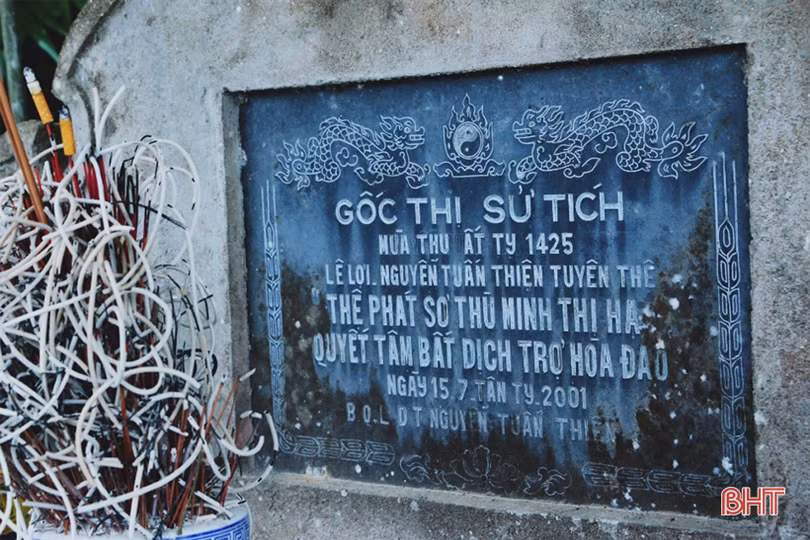 GỐC THỊ SỬ TÍCH
MÙA THU ẤT TỴ 1425
LÊ LỢI_NGUYỄN TUẤN THIỆN TUYÊN THỆ
"THỀ PHÁT SƠ THŨ MINH THỊ HẠ
QUYẾT TÂM BẤT DỊCH TRỢ HÒA ĐAO
NGÀY 15.7.TÂN TỴ.2001
B Q.L D T NGUYỄN TUẤN THIỆN
BHT